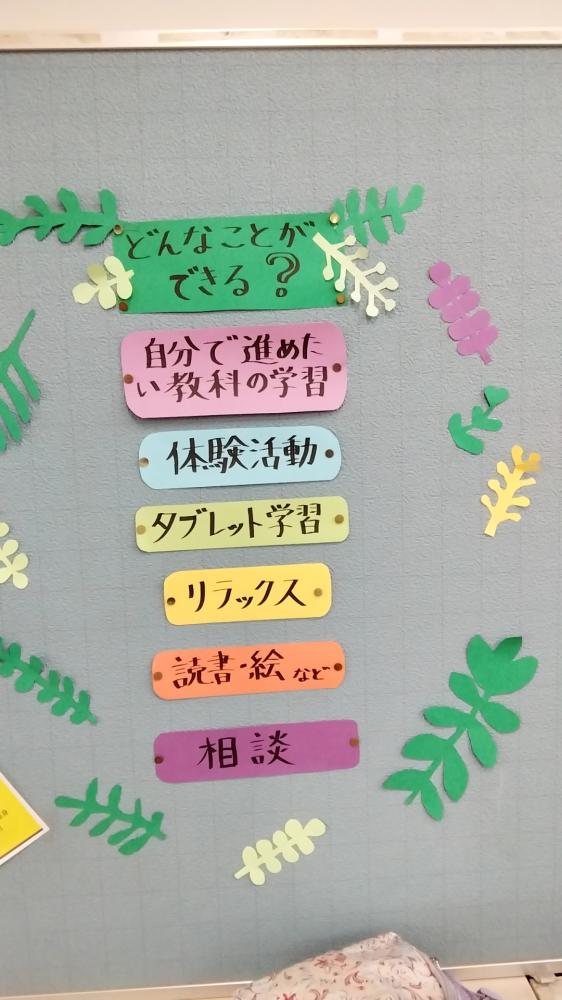 どんなことが
できる?
自分で進めた
い教科の学習
体験活動
タブレット学習
リラックス
読書・絵など
相談